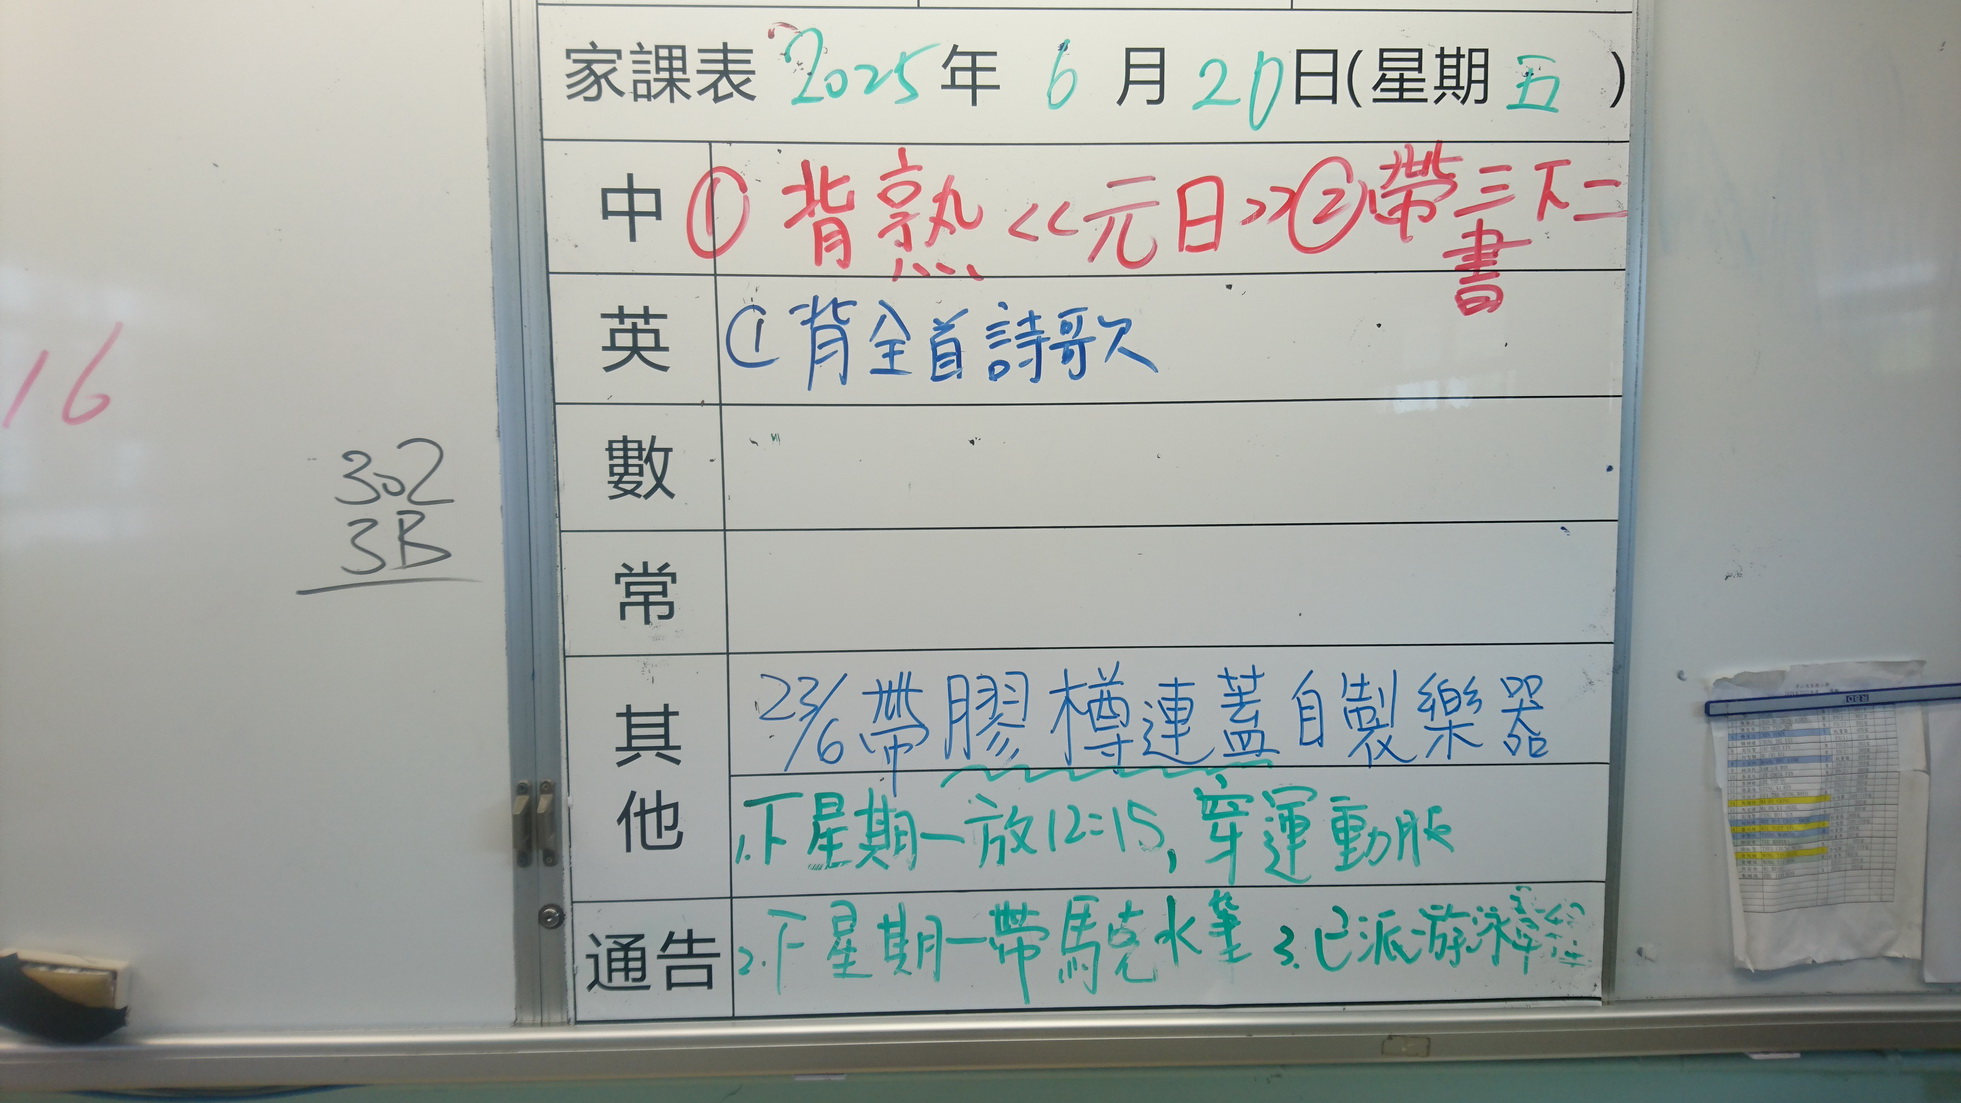 家課表 2025年 6 月 20日(星期 五 )
中 ① 背熟 <<元日>> ② 帶三下二
書
英 ① 背全首詩歌
16
302
3B
數
常
其他
23/6 帶膠樽連蓋自製樂器
1. 下星期一放12:15, 穿運動服
通告 2. 下星期一帶馬克水筆 3. 已派游泳